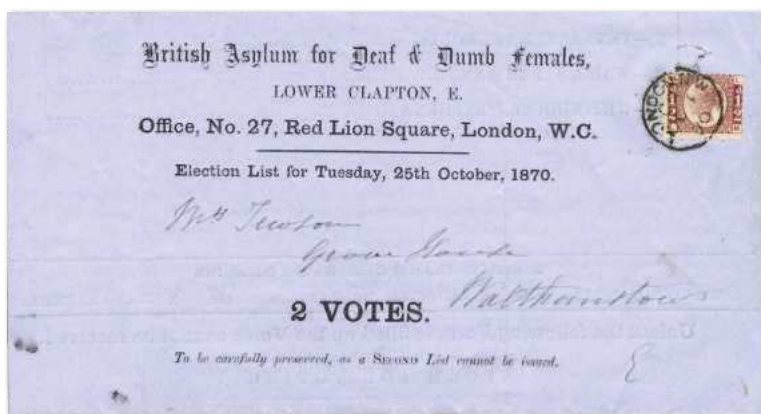 British Asylum for Deaf & Dumb Females,
LOWER CLAPTON, E.
Office, No. 27, Red Lion Square, London, W.C.
Election List for Tuesday, 25th October, 1870.
Grove House
Walthamstow
2 VOTES.
To be carefully preserved, as a SECOND List cannot be issued.
E